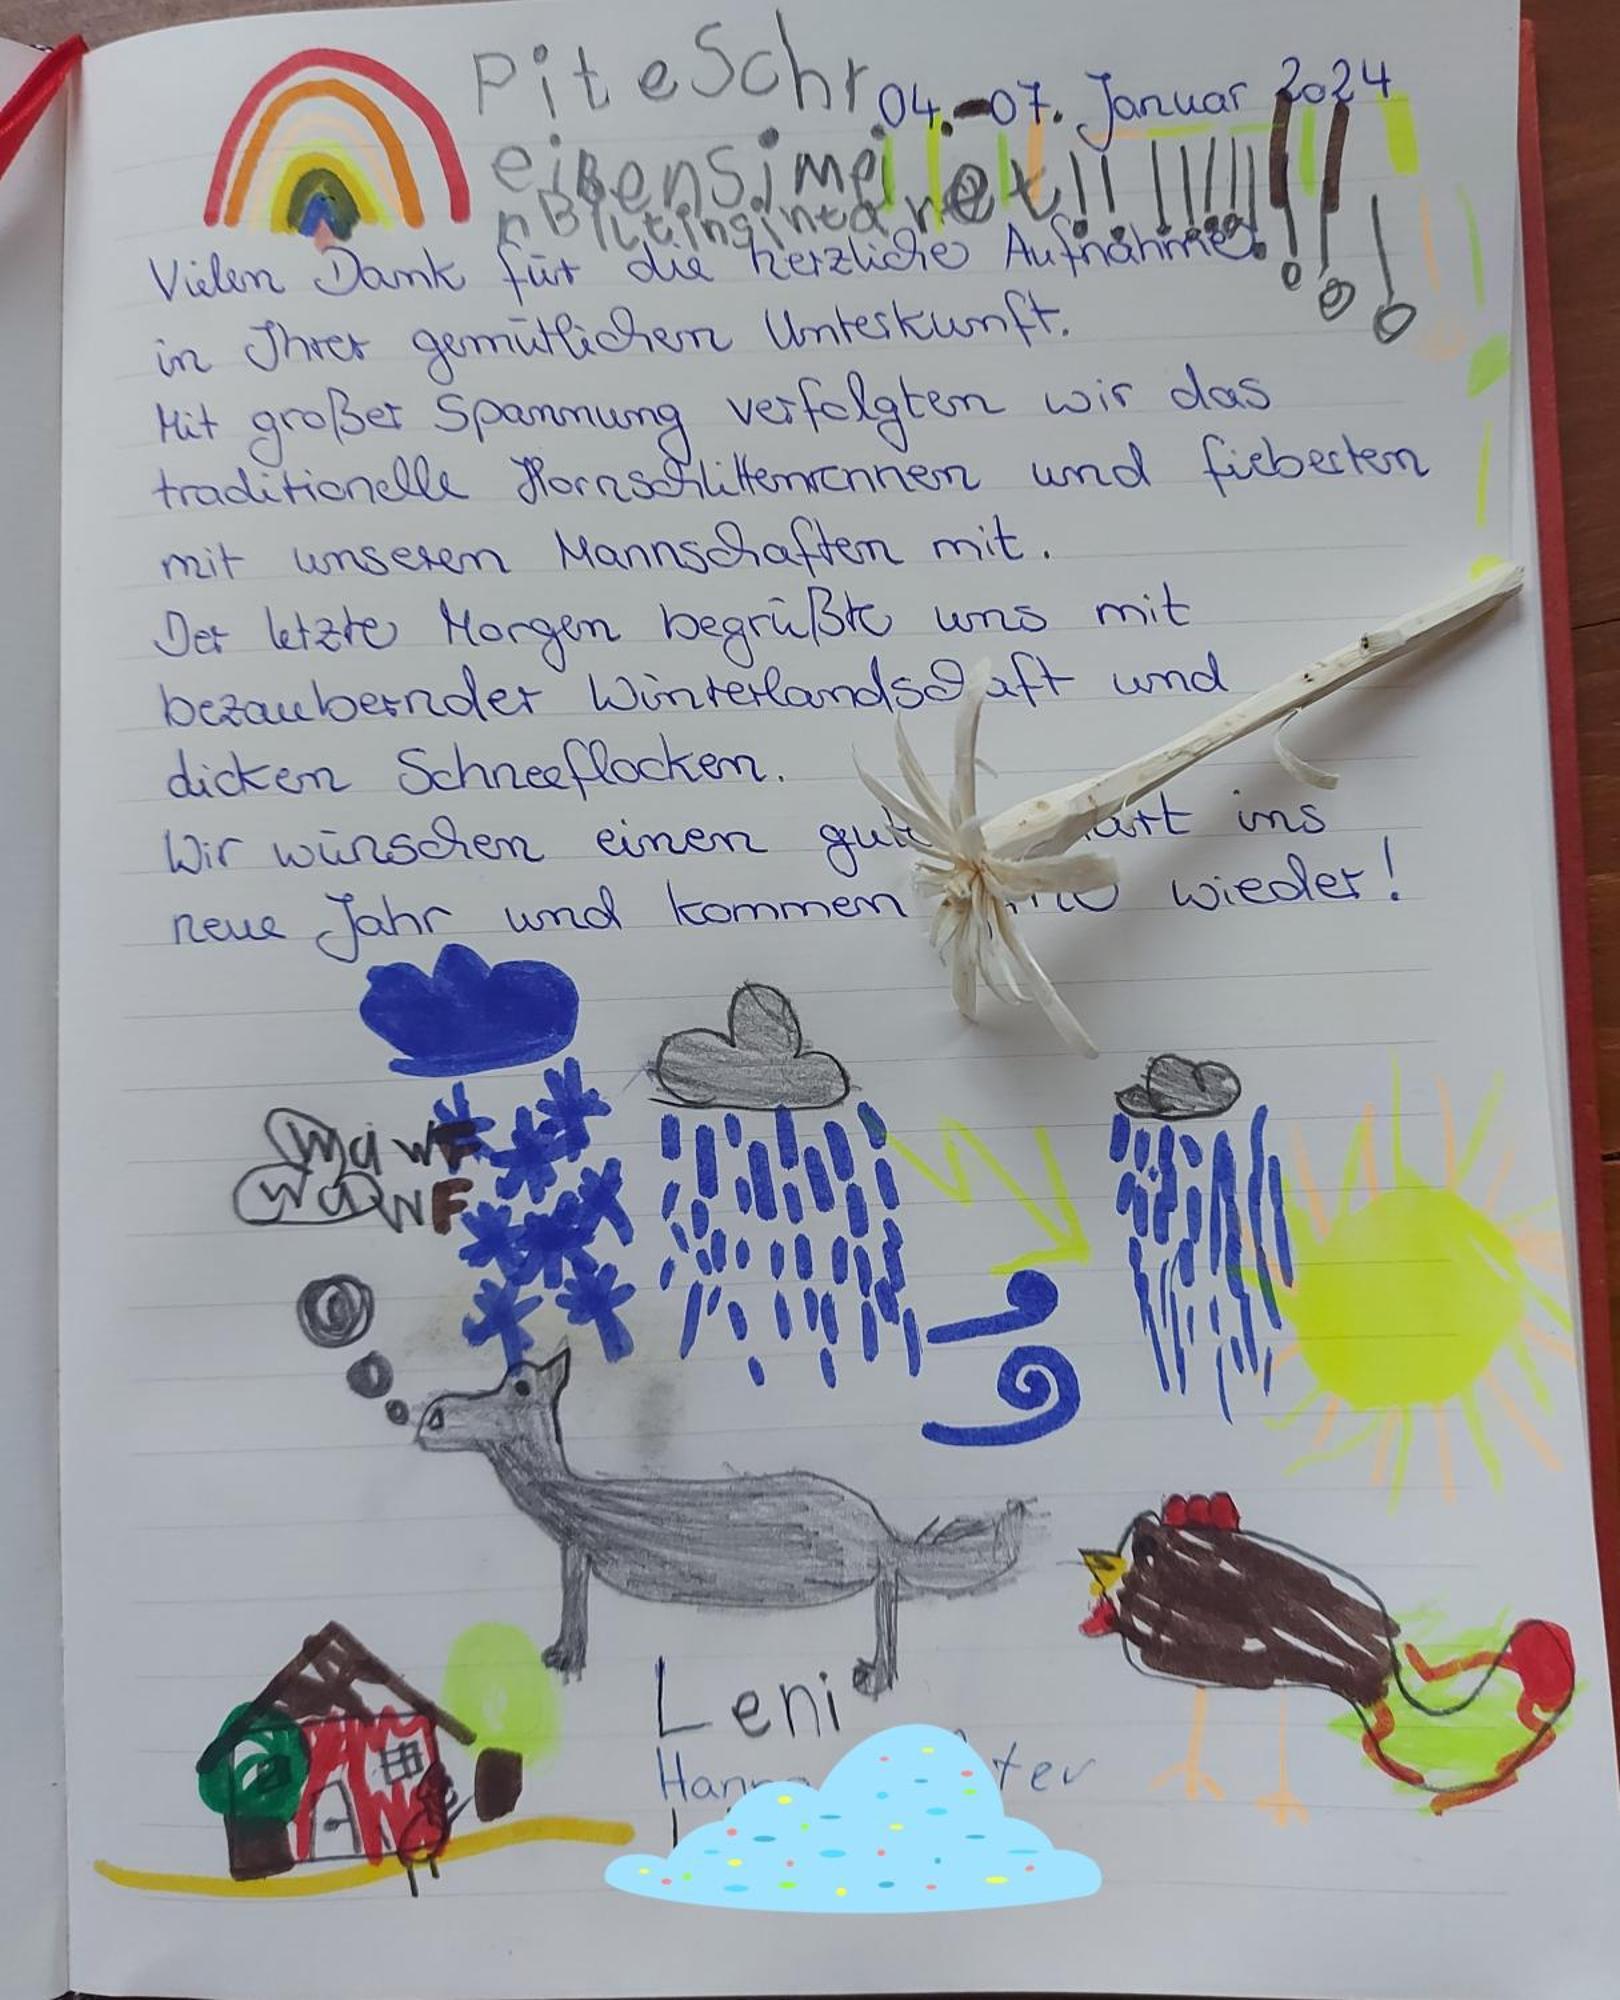 PiteSchr
04.-07. Januar 2024
eibensimei
nBilteingintanet!!!!!!!!!!!!!
Vielen Dank für die herzliche Aufnahme
in Ihrer gemütlichen Unterkunft.
Mit großer Spannung verfolgten wir das
traditionelle Hornschlittenrennen und fieberten
mit unseren Mannschaften mit.
Der letzte Morgen begrüßte uns mit
bezaubernder Winterlandschaft und
dicken Schneeflocken.
Wir wünschen einen ins
neue Jahr und kommen wieder!
wai wF
waowF
Leni